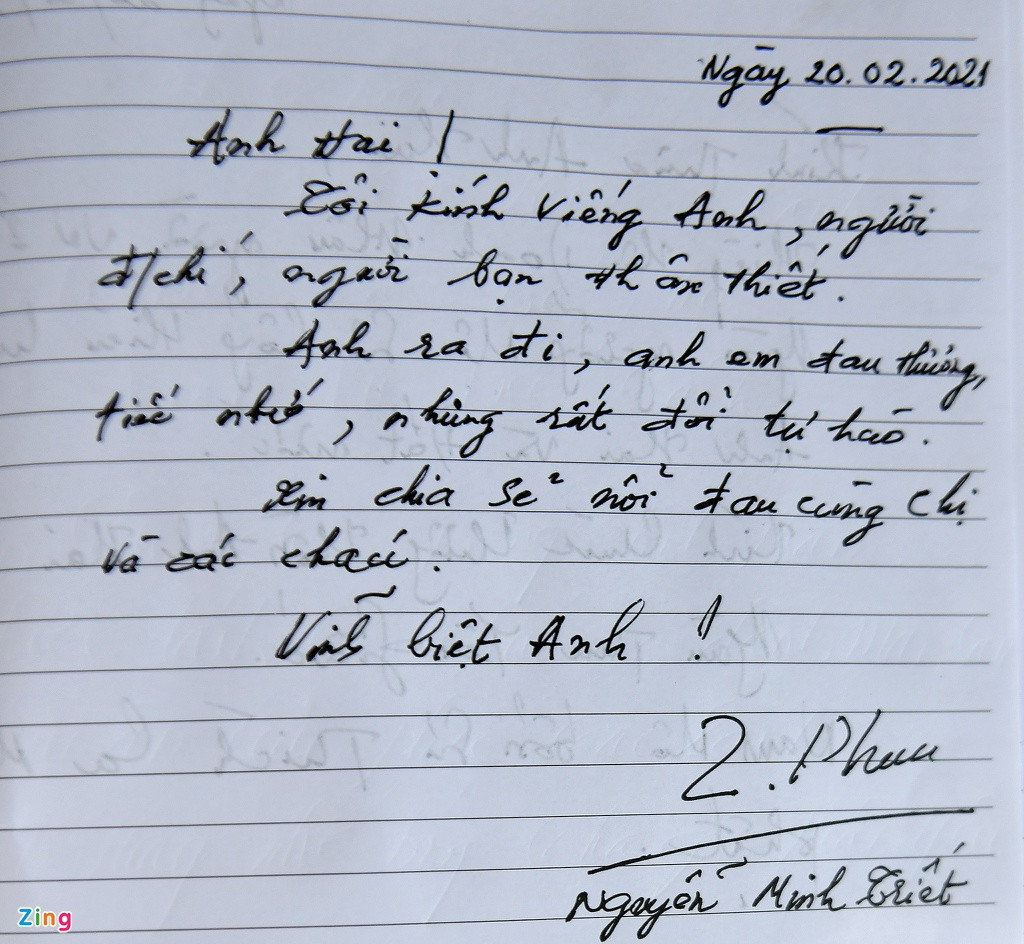 Ngày 20.02.2021
Anh Hai !
Tôi kính viếng Anh, người
đ/chí, người bạn thân thiết.
Anh ra đi, anh em đau thương,
tiếc nhớ, nhưng rất đổi tự hào.
Xin chia sẻ nổi đau cùng chị
và các cháu.
Vĩnh biệt Anh !
Nguyễn Minh Triết
Zing